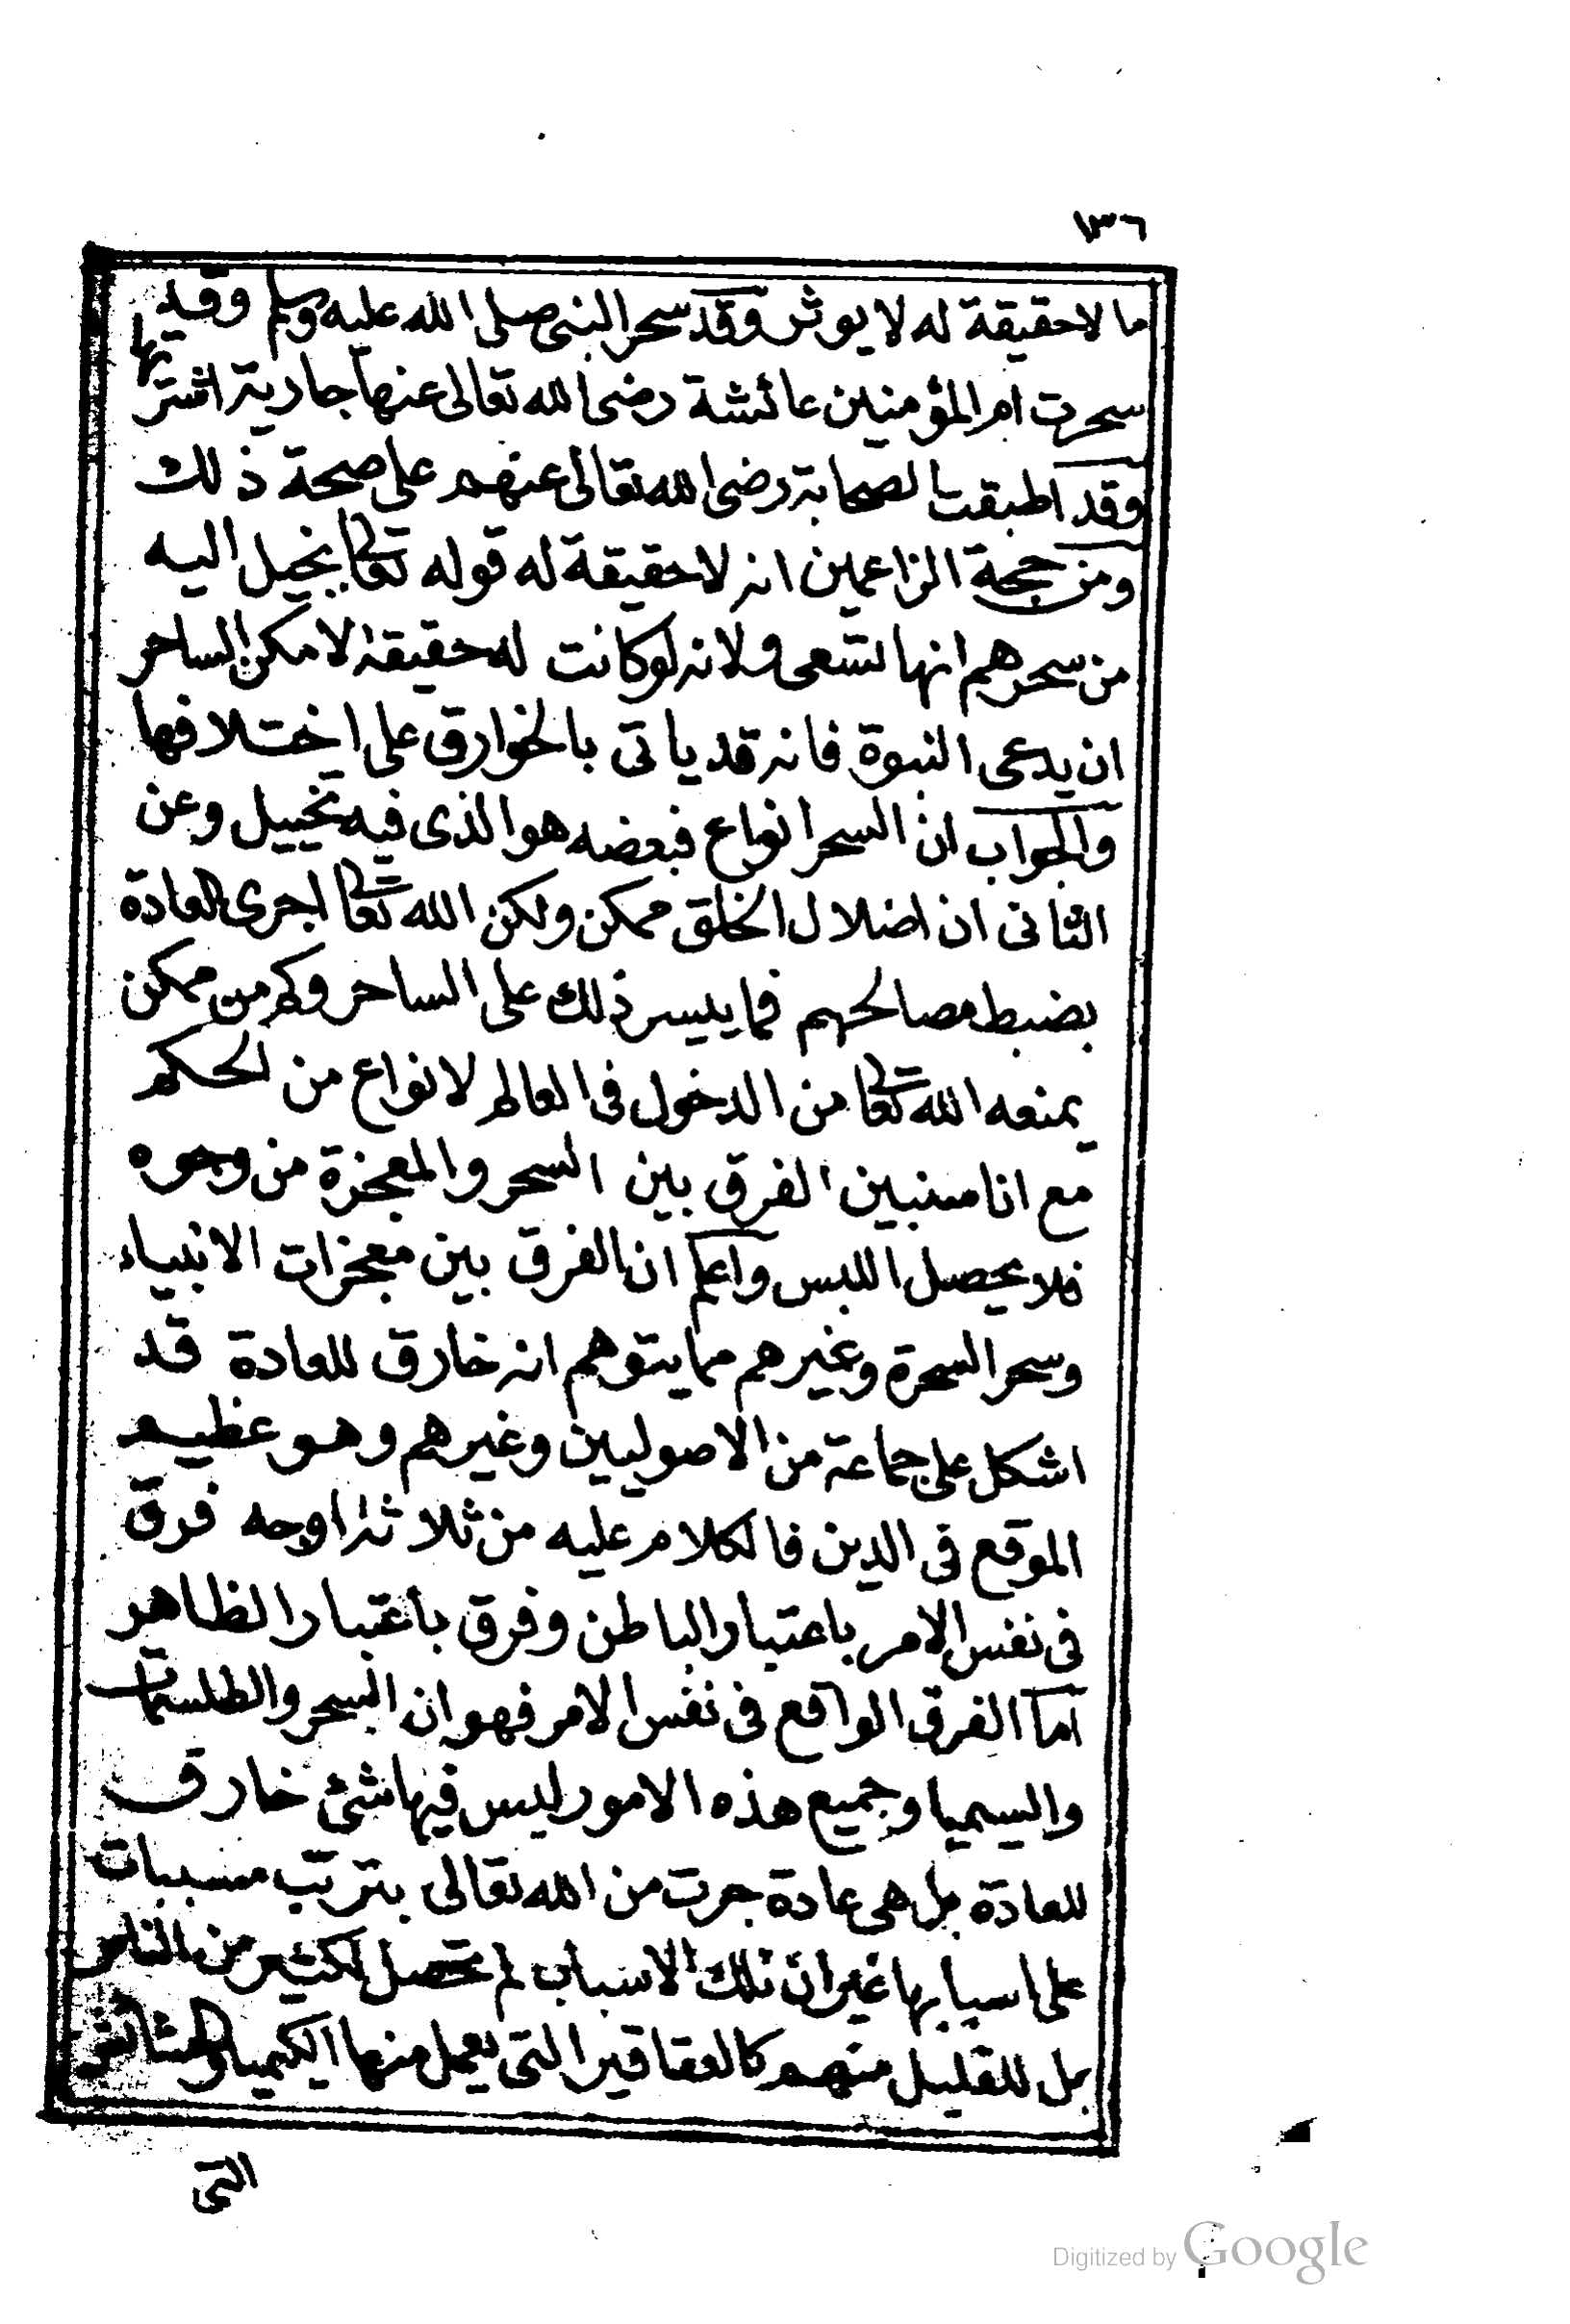 ١٣٦
ما لا حقيقة له لا يوثر وقد سحر النبى صلى الله عليه وسلم وقد
سحرت ام المؤمنين عائشة رضى الله تعالى عنها جارية اشتريتها
وقد اطبقت الصحابة رضى الله تعالى عنهم على صحة ذلك
ومن حجة الزاعمين انه لا حقيقة له قوله تعالى يخيل اليه
من سحرهم انها تسعى ولانه لو كانت له حقيقة لا مكن الساحر
ان يدعى النبوة فانه قد ياتى بالخوارق على اختلافها
والجواب ان السحر انواع فبعضه هو الذى فيه تخييل وعن
الثانى ان اضلال الخلق ممكن ولكن الله تعالى اجرى العادة
بضبط مصالحهم فما ييسر ذلك على الساحر وكم من ممكن
يمنعه الله تعالى من الدخول فى العالم لانواع من الحكم
مع انا سنبين الفرق بين السحر والمعجزة من وجوه
فلا يحصل اللبس واعلم ان الفرق بين معجزات الانبياء
وسحر السحرة وغيرهم مما يتوهم انه خارق للعادة قد
اشكل على جماعة من الاصوليين وغيرهم وهو عظيم
الموقع فى الدين فالكلام عليه من ثلاثة اوجه فرق
فى نفس الامر باعتبار الباطن وفرق باعتبار الظاهر
اما الفرق الواقع فى نفس الامر فهو ان السحر والطلسمات
والسيميا وجميع هذه الامور ليس فيها شئ خارق
للعادة بل هى عادة جرت من الله تعالى بترتب مسببات
على اسبابها غير ان تلك الاسباب لم تحصل لكثير من الناس
بل للقليل منهم كالعقاقير التى يعمل منها الكيميا والحشائش
التى
Digitized by Google